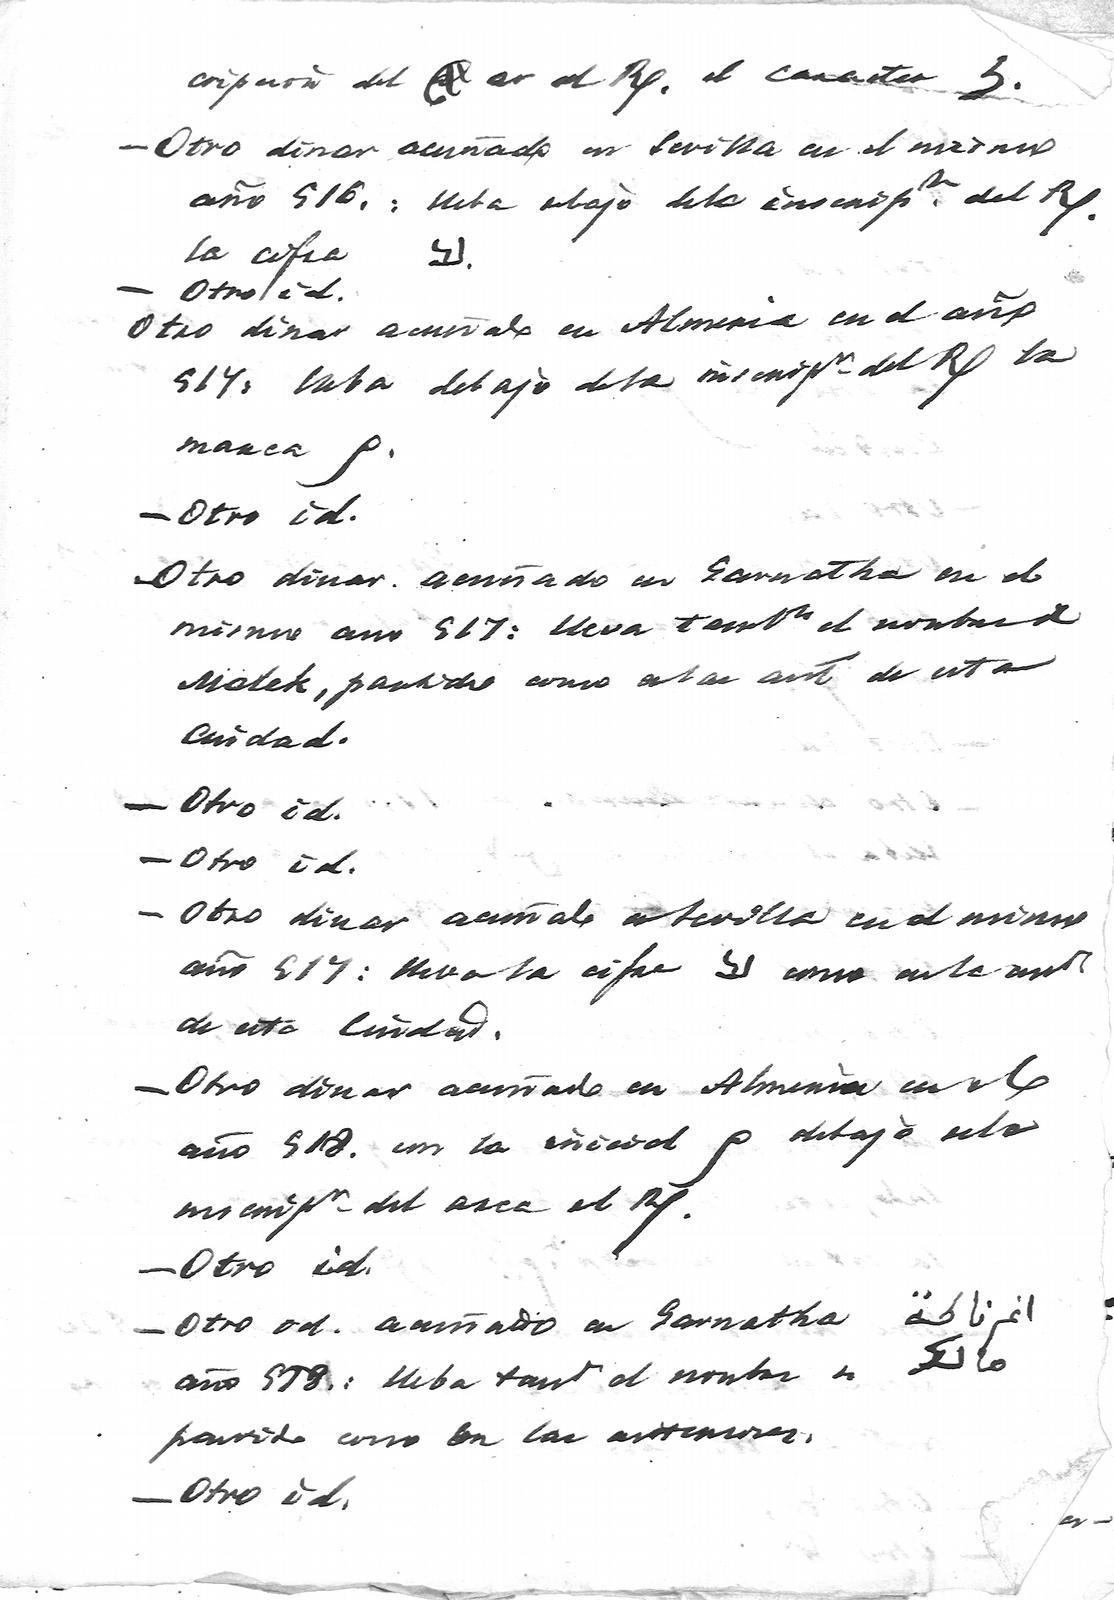 cripción del ar el Rf. el caracter
—Otro dinar acuñado en Sevilla en el mismo
año 516. : lleba abajo dela inscripn. del Rf.
la cifra
— Otro id.
Otro dinar acuñado en Almeria en el año
517: lleba debajo de la inscripn. del Rf la
marca م.
—Otro id.
—Otro dinar. acuñado en Garnatha en el
mismo ano 517: lleva tambn el nombre de
Malek, partido como en las ant de esta
Cuidad.
— Otro id.
— Otro id.
— Otro dinar acuñado en Sevilla en el mismo
año 517: lleva la cifra como en la ant
de esta Ciudad.
—Otro dinar acuñado en Almeria en el
año 518. con la inicial م debajo dela
inscripn. del area el Rf.
—Otro id.
—Otro id. acuñado en Garnatha اغرناطة
año 518.: lleba tamn el nombre مالك
partido como en las anteriores.
—Otro id.